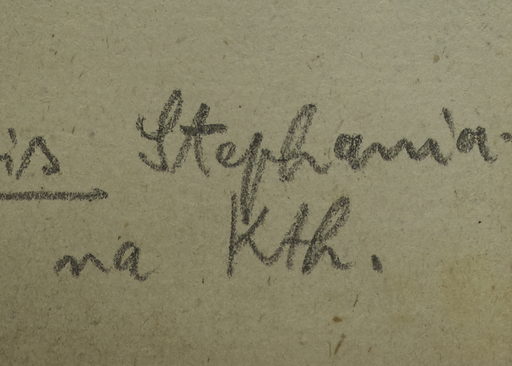 is Stephania-
na Kth.